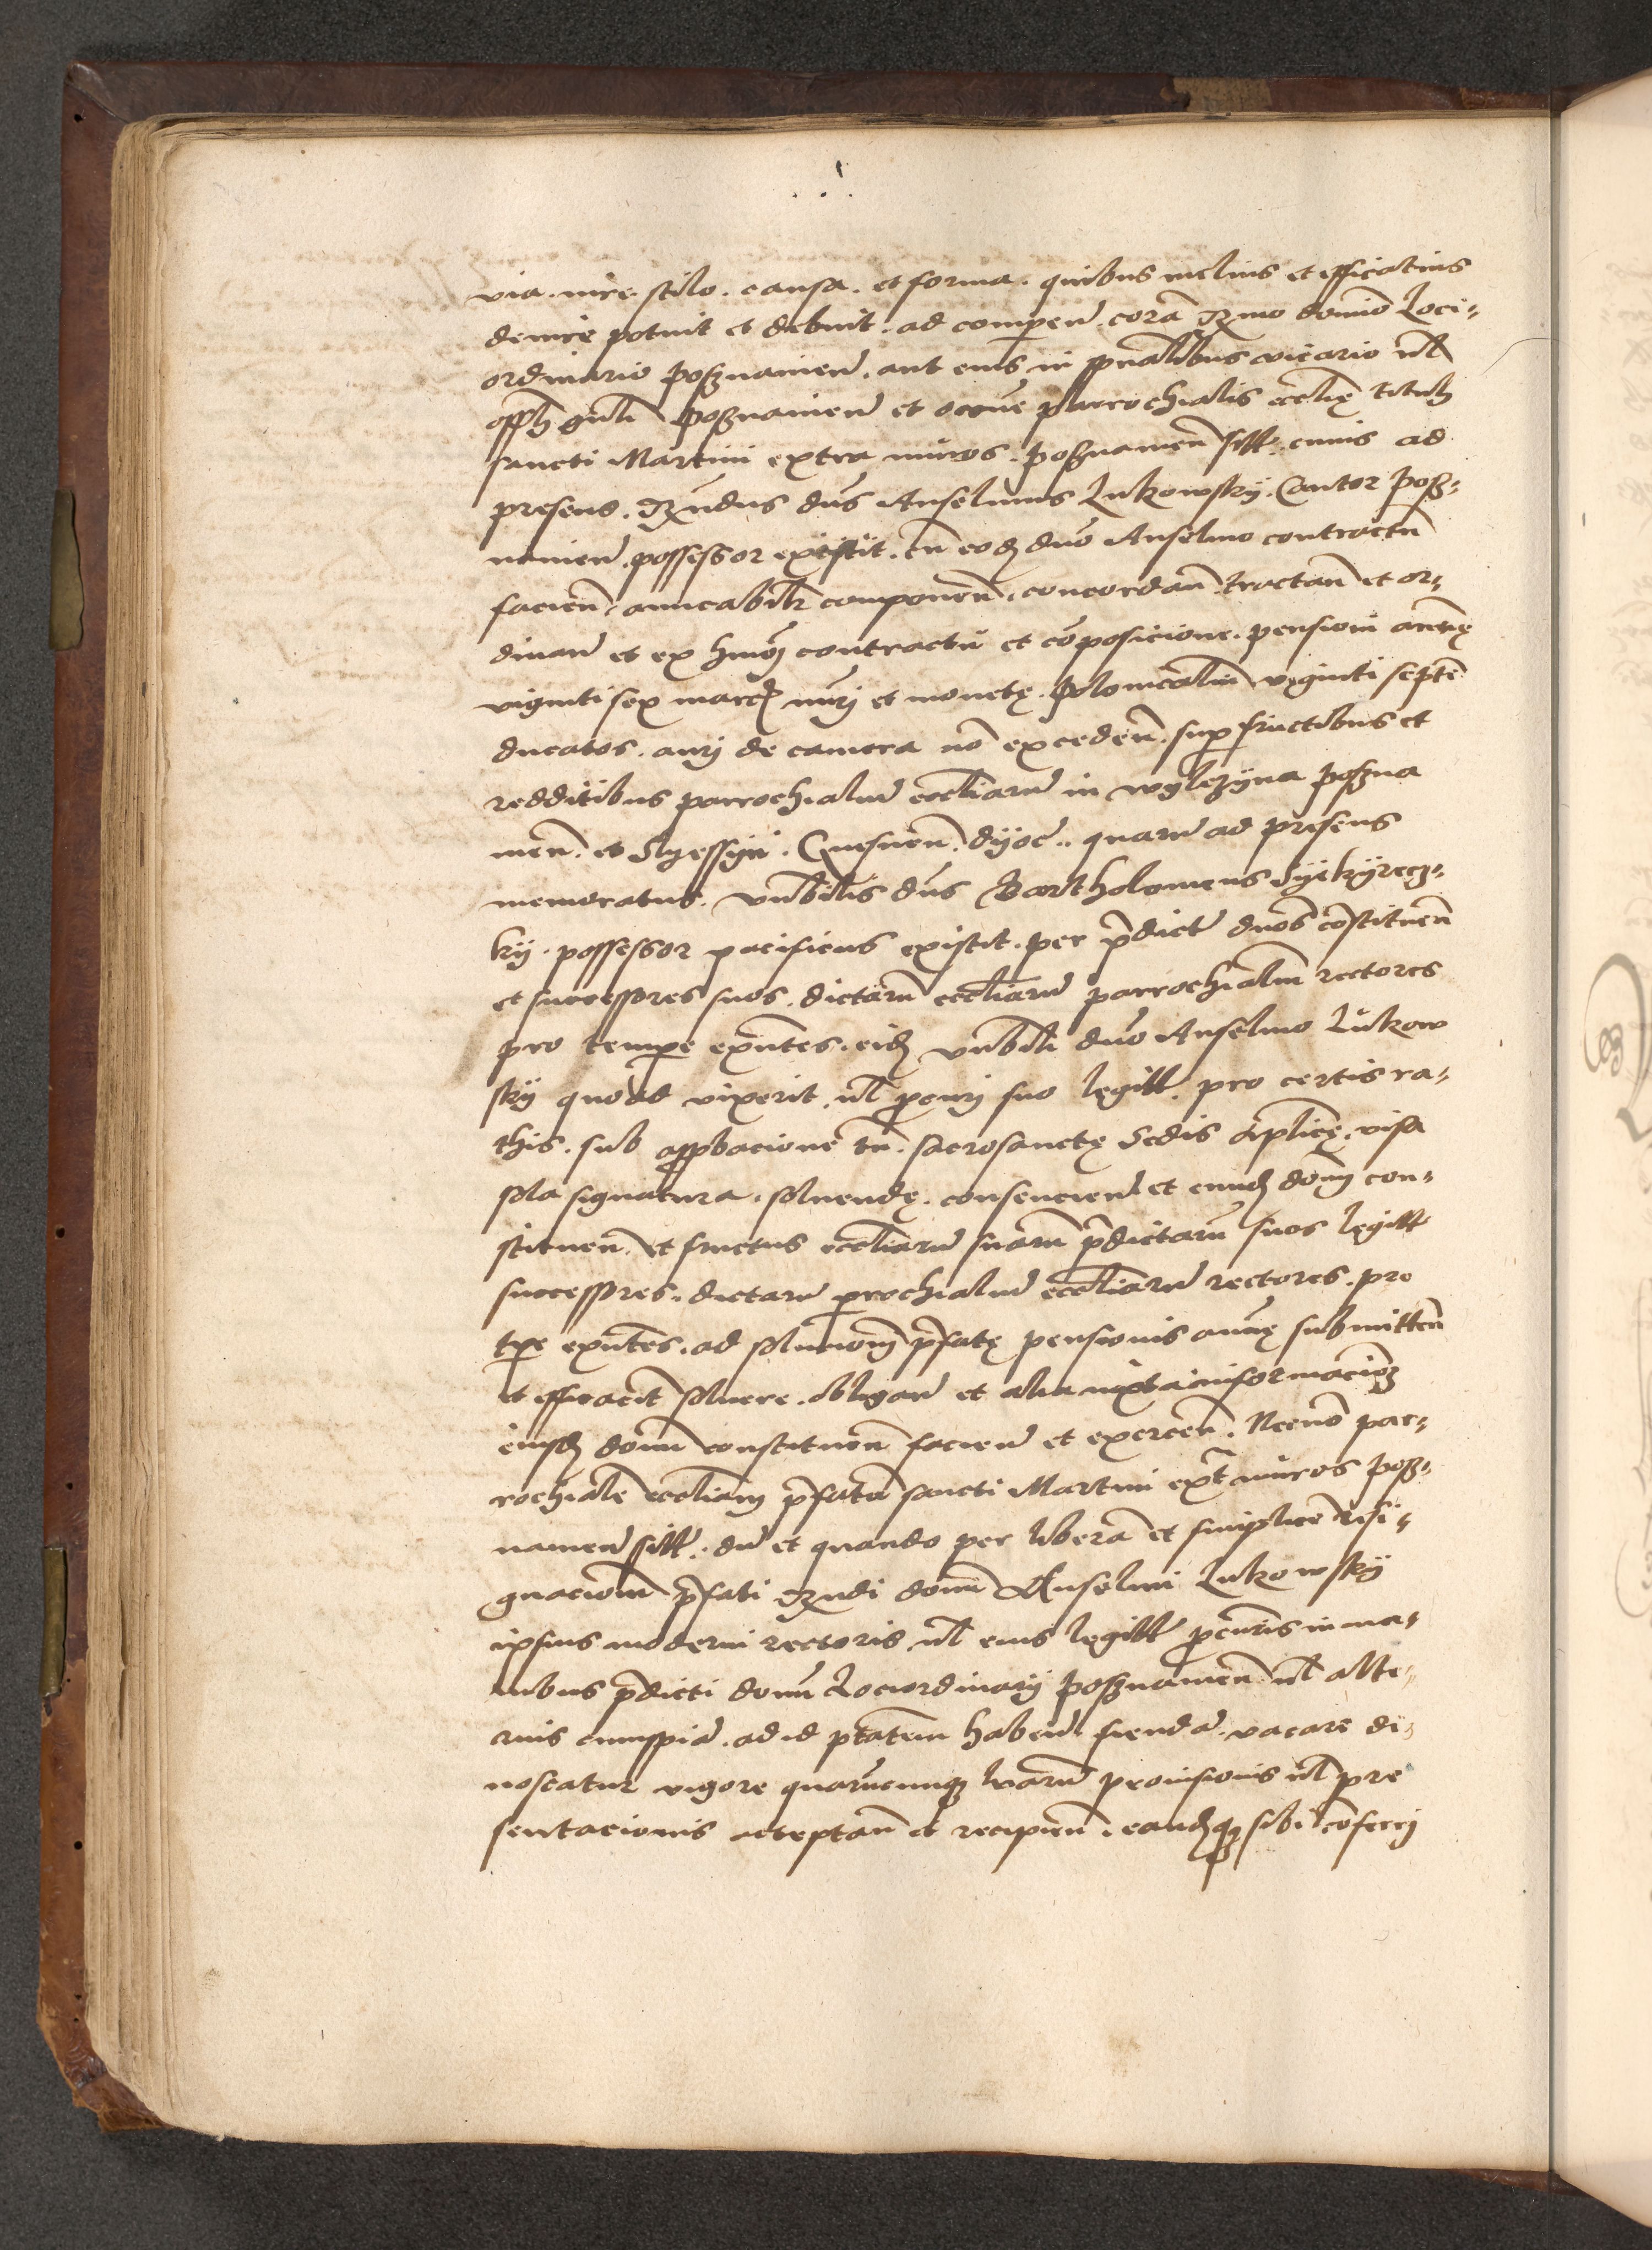 via. iure. stilo. causa. et forma. quibus melius et efficatius
deiure potuit et debuit. ad comparen̄. corā Rmo domīo Loci-
ordinario Poßnanien̄. aut eius in spūalibus vicario ul̄
offli gn̄li Poßnanien̄ et parrochialis eccl̄ię tituli
sancti Martini extra muros. Poßnanien̄ sitt. cuius ad
presens. Rn̄dus dn̄s Anselmus Lukowsky. Cantor Poß-
nanien̄. possessor existit. cū eod̄ dn̄o Anselmo contractū
facien̄. amicabilr̄ componen̄. concordan̄. tractan̄ et or-
dinan̄ et ex hmōi contractu et cōposicione. pensionī annuę
viginti sex marc̄ nūri et monetę. Polonicaliū viginti septē
ducatos. auri de camera nō exceden̄. sup fructibus et
redditibus parrochialiū eccl̄iarū in Wylczyna Poßna
nien̄. et Slessyn. Gnesnen̄. dyoc̄. quarū ad presens
memoratus. vn̄bilis dn̄s Bartholomeus
ky. possessor pacificus existit. per p̄dict̄ dn̄os cōstituen̄
et successores suos. dictarū eccl̄iarū parrochialiū rectores
pro tempe exn̄tes. eid̄ vn̄bili dn̄o Anselmo Lukow
sky quoad vixerit. ul̄ procuri suo legitt. pro certis ra-
this. sub approbacione tn̄. sacrosanctę Sedis Apl̄icę. visa
sola signatura. soluendę. consencien̄ et eund̄ dom̄ con-
stituen̄. et fructus eccl̄iarū suarū p̄dictarū suos legitt
successores. dictarū prochialiū eccl̄iarū rectores. pro
tpe exn̄tes. ad solucionē p̄fatę pensionis annuę submitten̄
et efficacit̄ soluere. obligan̄ et alia iuxta informacionē
eiusd̄ domī constituen̄ facien̄ et exercen̄. Necnō par-
rochialē eccl̄iam p̄fatā sancti Martini ext̄ muros Poß-
nanien̄ sitt. dū et quando per liberā et simplicē resi-
gnacionē p̄fati Rn̄di domī Anselmi Lukowsky
ipsius moderni rectoris ul̄ eius legitt procuris in ma-
nibus p̄dicti domī Lociordinarij Poßnanien̄ ul̄ alte-
rius cuiuspiā. ad id ptātem haben̄. fiendā. vacare di-
noscatur vigore quarūcunq̨ lrārū prouisionis ul̄ pre
sentacionis acceptan̄ et recipien̄. eand̄q̨ sibi cōferrj